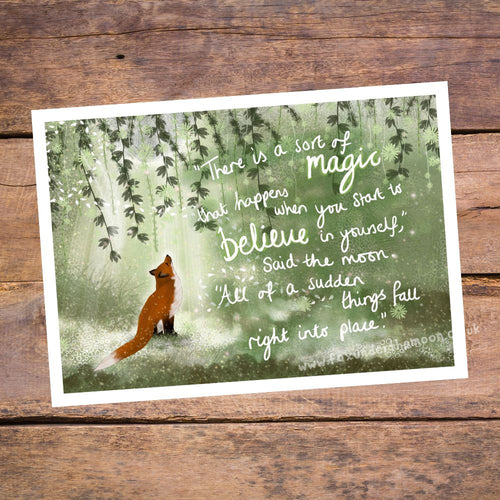 "There is a sort of
magic
that happens when you start to
believe in yourself,"
Said the moon.
"All of a sudden
things fall
right into place."